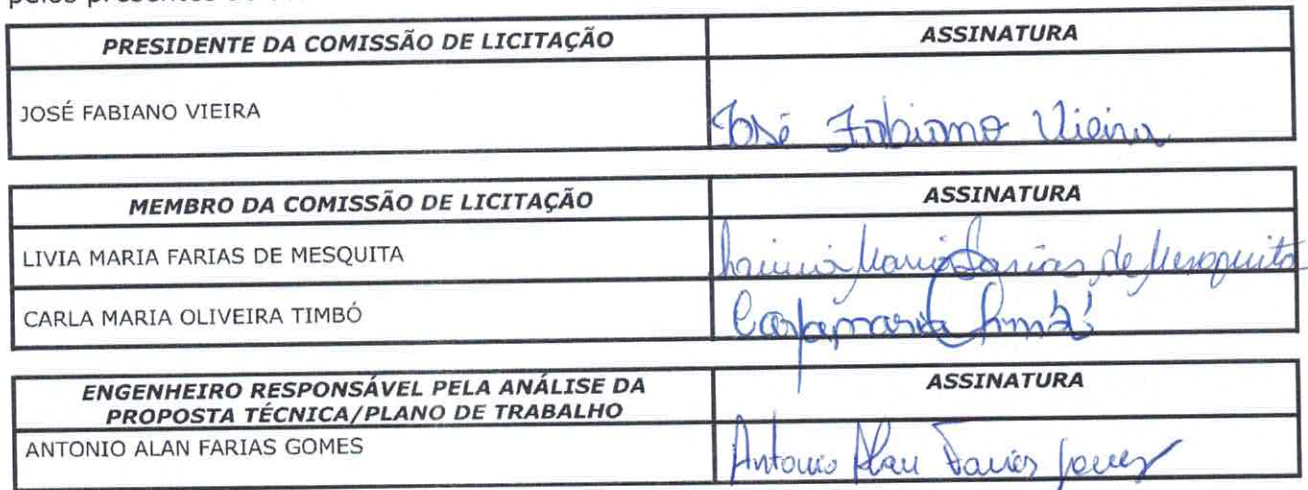 PRESIDENTE DA COMISSÃO DE LICITAÇÃO ASSINATURA
JOSÉ FABIANO VIEIRA José Fabiano Vieira
MEMBRO DA COMISSÃO DE LICITAÇÃO ASSINATURA
LIVIA MARIA FARIAS DE MESQUITA Maria Farias de Mesquita
CARLA MARIA OLIVEIRA TIMBÓ Carla Maria Timbó
ENGENHEIRO RESPONSÁVEL PELA ANÁLISE DA ASSINATURA
PROPOSTA TÉCNICA/PLANO DE TRABALHO
ANTONIO ALAN FARIAS GOMES Antonio Alan Farias Gomes